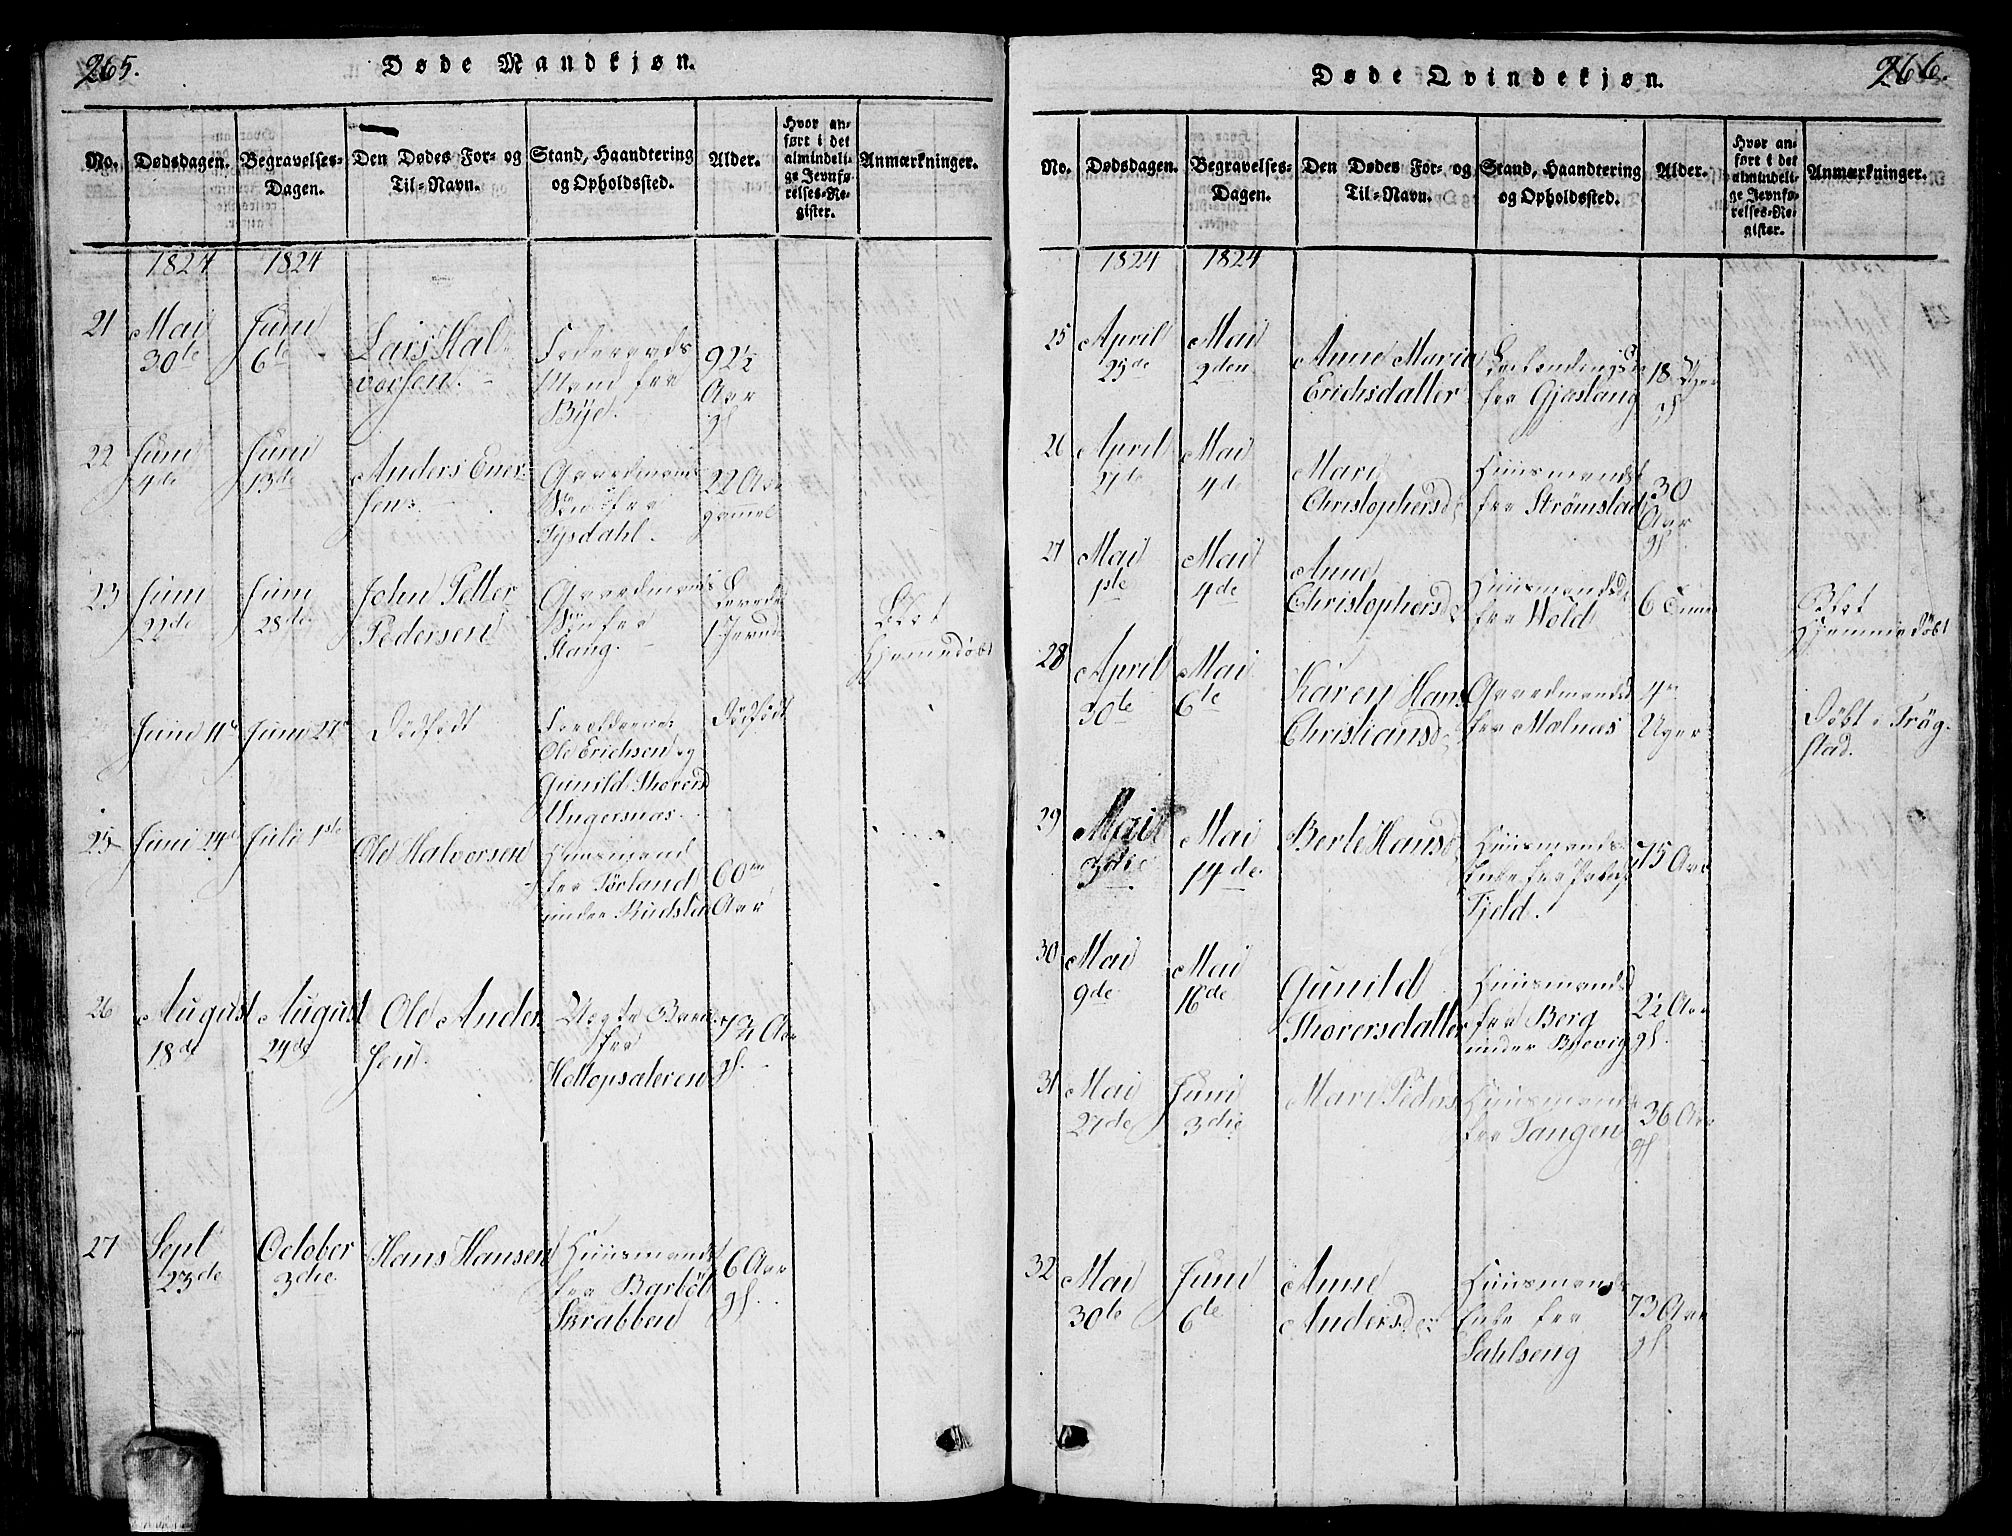 265.
Døde Mandkjøn.
No.
Dødsdagen.
Begravelses-
Dagen.
Den Dødes For- og
Til-Navn.
Stand, Haandtering
og Opholdssted.
Alder.
Hvor an-
ført i det
almindeli-
ge Jevnfø-
relses-Re-
gister.
Anmærkninger.
1824 1824
21
Mai
30te
Juni
6te
Lars Hal
vorsen.
Mand fra
Bye.
92½
Aar
gl
22
Juni
4de
Juni
13de
Anders Ener
sen
Gaardmands
Søn fra
Tysdahl.
22 Aar
gamel
23
Juni
22de
Juni
28de
John Petter
Pedersen
Gaardmands
Søn fra
Stang.
Blot
Hjemmedøbt
Juni 11te
Juni 27de
Dødfødt
Forældrene
Ole Erichsen og
Gunild Thorersd
Ungersnæs.
Dødfødt
25
Juni 24de
Juli 1ste
Ole Halvorsen
Huusmand
fra Törland
under Rudslen
60
Aar
26
August
18de
August
24de
Ole Ander
sen.
fra
Heltopsateren
Aar
gl.
27
Sept
23de
October
3die
Hans Hansen
Huusmands
fra Barböl
Skrabben
6 Aar
gl.
266.
Døde Qvindekjøn.
No.
Dødsdagen.
Begravelses-
Dagen.
Den Dødes For- og
Til-Navn.
Stand, Haandtering
og Opholdssted.
Alder.
Hvor an-
ført i det
almindeli-
ge Jevnfø-
relses-Re-
gister.
Anmærkninger.
1824 1824
25
April
25de
Mai
2den
Anne Maria
Erichsdatter
fra Gjøslang
18 Uger
gl
26
April
27de
Mai
4de
Mari
Christophersd
Huusmands
fra Strømstad
30
Aar
gl
27
Mai
1ste
Mai
4de
Anne
Christophersd
Huusmandsd
fra Wold
6
Blot
Hjemmedöbt
28
April
30te
Mai
6te
Karen Hans
Christiansd
Gaardmandsd
fra Molnæs
4
Uger
Döbt i Trög-
stad.
29
Mai
3die
Mai
14de
Berte Hansd
Huusmands
Enke fra
Fjeld.
75 Aar
30
Mai
9de
Mai
16de
Gunild
Thorersdatter
Huusmandsd
fra Berg
under Bøevig
2½ Aar
gl.
31
Mai
27de
Juni
3die
Mari Peders
Huusmands
fra Tangen
36 Aar
gl
32
Mai
30te
Juni
6te
Anne
Andersd
Huusmands
Enke fra
Sahlseng
73 Aar
gl